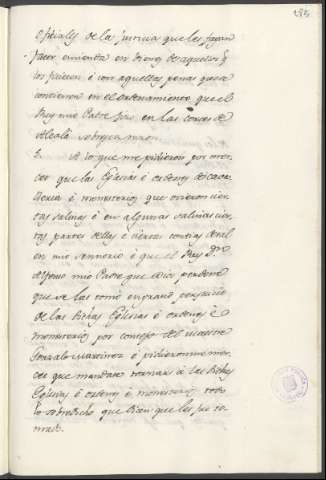 285
oficiales de la justicia que les fagan
facer enmienda en bienes de aquellos q
los ficieren é con aquellas penas que se
contienen en el ordenamiento que el
Rey mio Padre fizo en las cortes de
Alcalá sobre esta razon.
A lo que me pidieron por mer-
ced que las Eglesias é ordenes de cava-
lleria é monesterios que ovieron cier-
tas salinas é en algunas salinas cier-
tas partes dellas é ciertas contias de sal
en mio sennorio é que el Rey Dn.
Alfonso mio Padre que Dios perdone
que se las tomó en grand perjuicio
de las dichas Eglesias é ordenes é
monesterios por consejo del maestre
Gonzalo Martinez é pidieronme mer-
ced que mandase tornar á las dichas
Eglesias é ordenes é monesterios todo
lo sobredicho que dicen que les fue to-
mado.